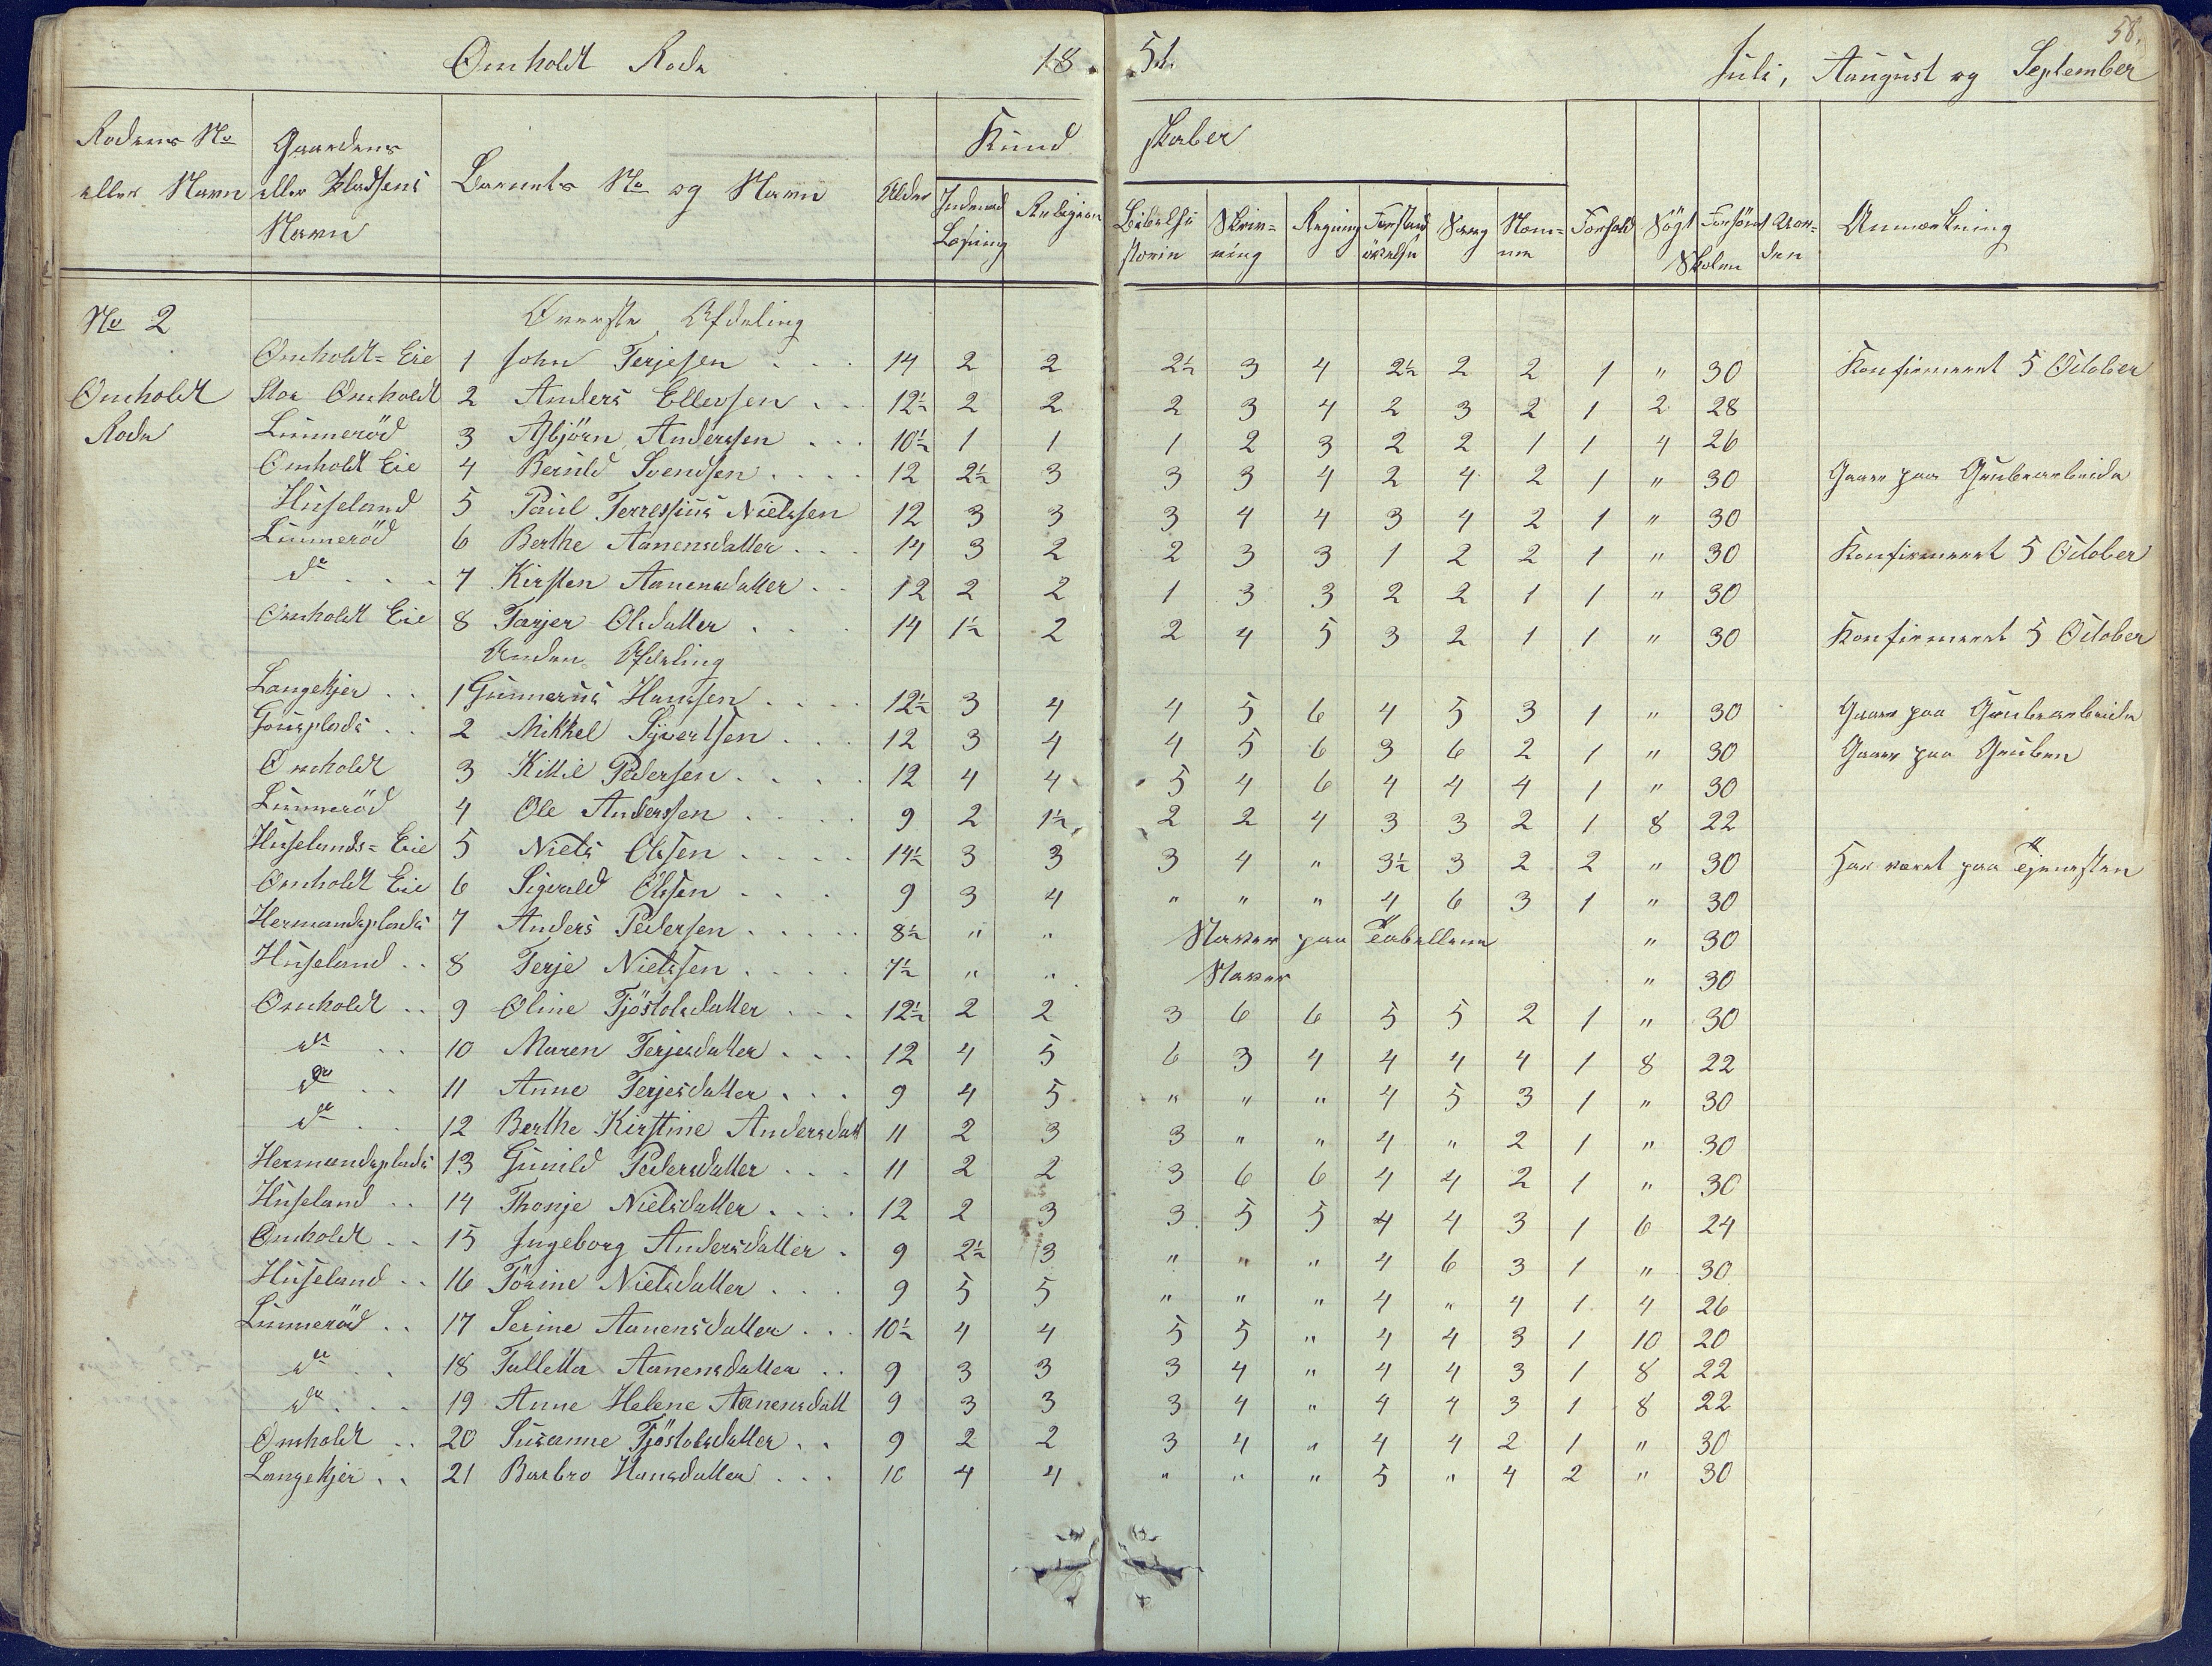 58.
Omholdt Rode 18.51. Juli, Aaugust og September
Rodens No eller Navn | Gaardens eller Pladsens Navn | Barnets No og Navn | Alder | Kundskaber | Indenad Læsning | Religion | Bibelhistorie | Skrivning | Regning | Forstandsøvelse | Sang | Nemme | Forhold | Søgt Skolen | Forsømt | Anmærkning
No 2 Øverste Afdeling
Omholdt-Eie 1 John Terjesen 14 2 2 2½ 3 4 2½ 2 2 1 " 30 Konfirmeret 5 October
Omholdt Stor Omholdt 2 Anders Ellevsen 12½ 2 2 2 3 4 2 3 2 1 2 28
Rode Lunnerød 3 Asbjörn Anderssen 10½ 1 1 1 2 3 2 2 1 1 4 26
Omholdt Eie 4 Berulv Svendsen 12 2½ 3 3 3 4 2 4 2 1 " 30 Gaaer paa Grubearbeide
Huseland 5 Paul Terressius Nielssen 12 3 3 3 4 4 3 4 2 1 " 30
Lunnerød 6 Berthe Aanensdatter 14 3 2 2 3 3 1 2 2 1 " 30 Konfirmeret 5 October
do 7 Kirsten Aanensdatter 12 2 2 1 3 3 2 2 1 1 " 30
Omholdt Eie 8 Tarjer Olsdatter 14 1½ 2 2 4 5 3 2 1 1 " 30 Konfirmeret 5 October
Anden Afdeling
Langekjer 1 Gunnerus Hanssen 12½ 3 4 4 5 6 4 5 3 1 " 30 Gaaer paa Grubearbeide
2 Mikkel Syvertsen 12 3 4 4 5 6 3 6 2 1 " 30 Gaaer paa Gruben
Omholdt 3 Kittil Pedersen 12 4 4 5 4 6 4 4 4 1 " 30
Lunnerød 4 Ole Anderssen 9 2 1½ 2 2 4 3 3 2 1 8 22
Huselands-Eie 5 Niels Olssen 14½ 3 3 3 4 " 3½ 3 2 2 " 30 Har været paa Tjenesten
Omholdt Eie 6 Sigvald Olssen 9 3 4 " " " 4 6 3 1 " 30
Hermandsplads 7 Anders Pedersen 8½ " " Staver paa Tabellerne " 30
Huseland 8 Terje Nielssen 7½ " " Staver " 30
Omholdt 9 Oline Tjöstolsdatter 12½ 2 2 3 6 6 5 5 2 1 " 30
do 10 Maren Terjesdatter 12 4 5 6 3 4 4 4 4 1 8 22
do 11 Anne Terjesdatter 9 4 5 " " " 4 5 3 1 " 30
do 12 Berthe Kirstine Andersdatt 11 2 3 3 " " 4 " 2 1 " 30
Hermandsplads 13 Gunild Pedersdatter 11 2 2 3 6 6 4 4 2 1 " 30
Huseland 14 Thonje Nielsdatter 12 2 3 3 5 5 4 4 3 1 6 24
Omholdt 15 Ingeborg Andersdatter 9 2½ 3 " " " 4 6 3 1 " 30
Huseland 16 Törine Nielsdatter 9 5 5 " " " 4 " 4 1 4 26
Lunnerød 17 Serine Aanensdatter 10½ 4 4 5 5 " 4 4 3 1 10 20
do 18 Talletta Aanensdatter 9 3 3 3 4 " 4 4 3 1 8 22
do 19 Anne Helene Aanensdatt 9 3 3 3 4 " 4 4 3 1 8 22
Omholdt 20 Susanne Tjöstolsdatter 9 2 2 3 4 " 4 4 2 1 " 30
Langekjer 21 Barbro Hansdatter 10 4 4 " " " 5 " 4 2 " 30